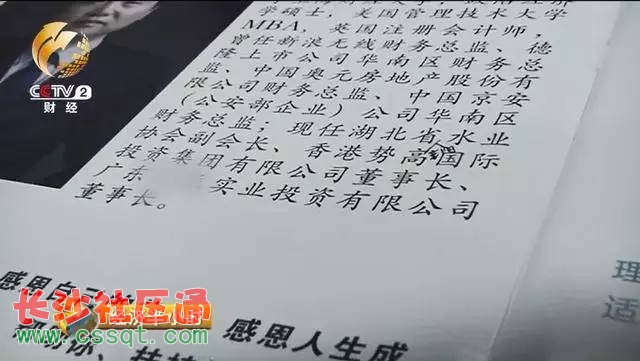 学硕士，美国管理技术大学
MBA，英国注册会计师，
曾任新浪无线财务总监、德
隆上市公司华南区财务总
监、中国奥元房地产股份有
限公司财务总监、中国京安
（公安部企业）公司华南区
财务总监；现任湖北省水业
协会副会长、香港势高国际
投资集团有限公司董事长、
广东 实业投资有限公司
董事长。
CCTV 2
财经
感恩人生成
理
适
长沙社区通
www.cssqt.com